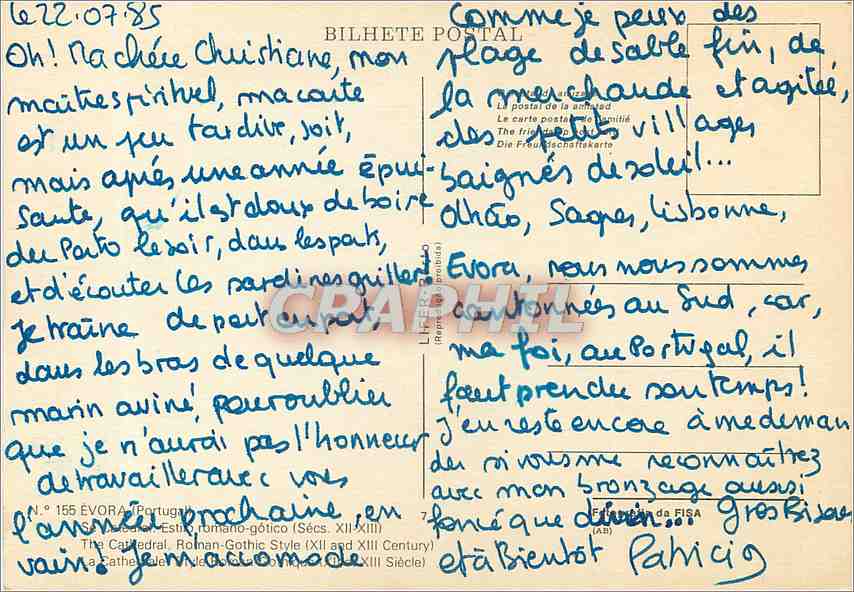 le 22.07.85
BILHETE POSTAL
Oh! Ma chére Christiane, mon
maître spirituel, ma carte
est un peu tardive, soit,
mais aprés une année épui-
sante, qu'il est doux de boire
du Porto le soir, dans les ports,
et d'écouter les sardines griller
je traîne de port en port,
dans les bras de quelque
marin aviné, pour oublier
que je n'aurai pas l'honneur
de travailler avec vous
l'année prochaine, en
vain. Je m'accomode
Comme je peux des
plage de sable fin, de
la mer chaude et agitée,
des petits villages
baignés de soleil...
Olhão, Sagres, Lisbonne,
Evora, nous nous sommes
cantonnés au Sud, car,
ma foi, au Portugal, il
faut prendre son temps!
J'en reste encore à me deman
der si vous me reconnaîtrez
avec mon bronzage aussi
foncé que divin... Gros Bisous
et à Bientôt Patricia
La postal de la amistad
La carte postale de l'amitié
The friendship postcard
Die Freundschaftskarte
LIFER-PORTO
(Reprodução proibida)
CPAPHIL
N.º 155 ÉVORA (Portugal)
Sé Catedral. Estilo romano-gótico (Sécs. XII-XIII)
The Cathedral. Roman-Gothic Style (XII and XIII Century)
La Cathédrale. Style Roman-Gothique (XII-XIII Siècle)
7
Fotografia da FISA
(AB)